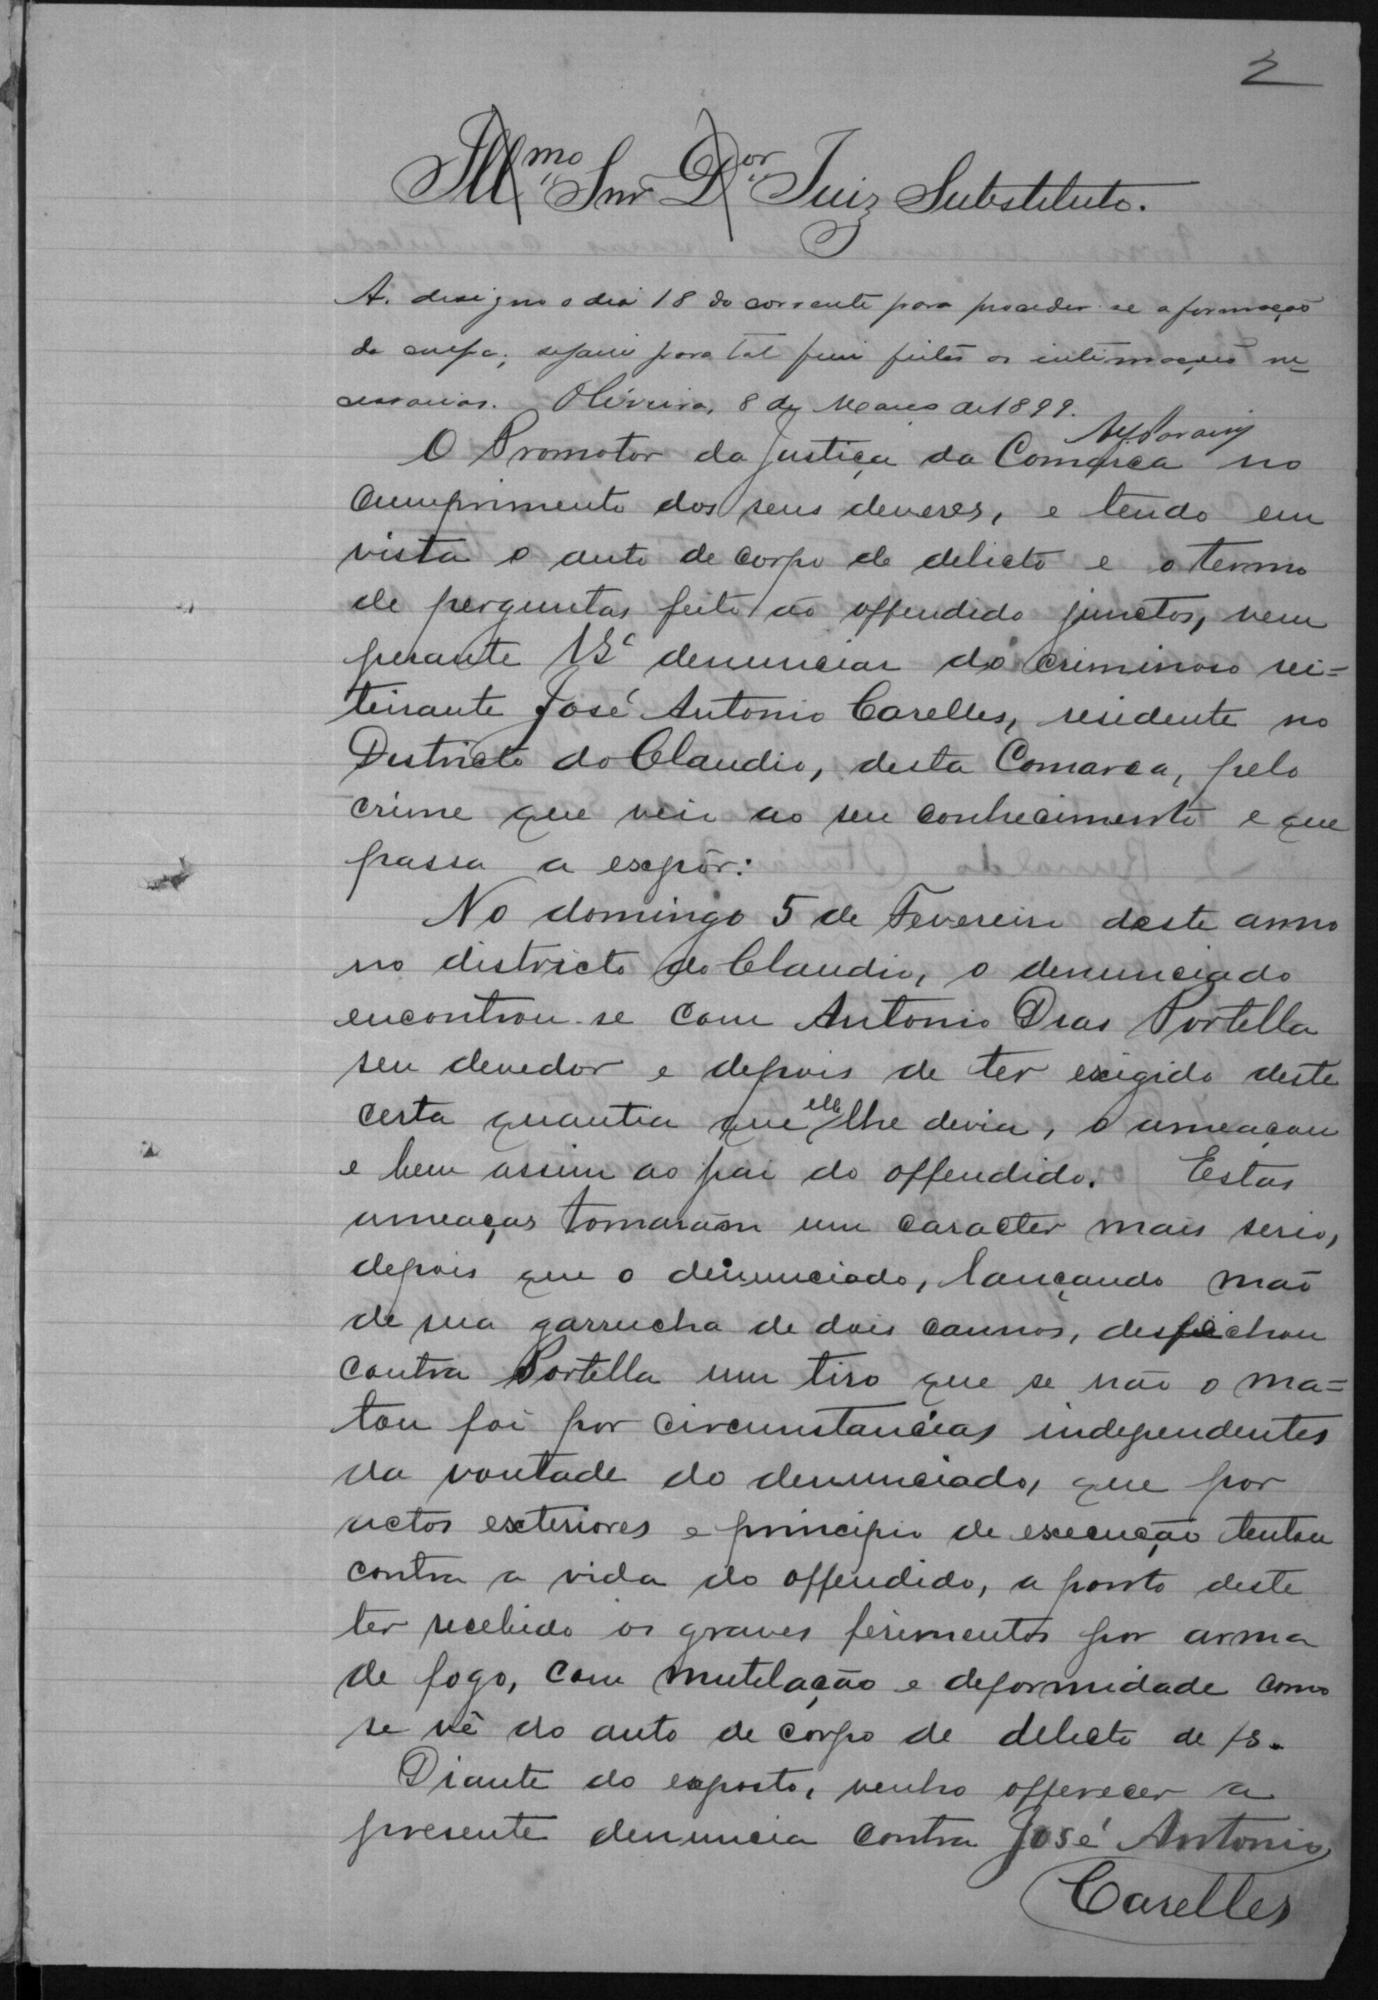 2
Ill.mo Snr D.or Juiz Substituto.
A. designo o dia 18 do corrente para proceder-se a formação
da culpa; sejam para tal fim feitas as intimações ne-
cessarias. Oliveira, 8 de Março de 1899.
O Promotor da Justiça da Comarca no
cumprimento dos seus deveres, e tendo em
vista o auto de corpo de delicto e o termo
de perguntas feito ao offendido junctos, vem
perante V.Sª denunciar do criminoso rei=
terante José Antonio Carelles, residente no
Districto do Claudio, desta Comarca, pelo
crime que veio ao seu conhecimento e que
passa a expôr:
No domingo 5 de Fevereiro deste anno
no districto do Claudio, o denunciado
encontrou-se com Antonio Dias Portella
seu devedor e depois de ter exigido deste
certa quantia que elle lhe devia, o ameaçou
e bem assim ao pai do offendido. Estas
ameaças tomaram um caracter mais serio,
depois que o denunciado, lançando mão
de sua garrucha de dois cannos, desfechou
contra Portella um tiro que se não o ma=
tou foi por circumstancias independentes
da vontade do denunciado, que por
actos exteriores e principio de execução tentou
contra a vida do offendido, a ponto deste
ter recebido os graves ferimentos por arma
de fogo, com mutilação e deformidade como
se vê do auto de corpo de delicto de fs.
Diante do exposto, venho offerecer a
presente denuncia contra José Antonio
Carelles